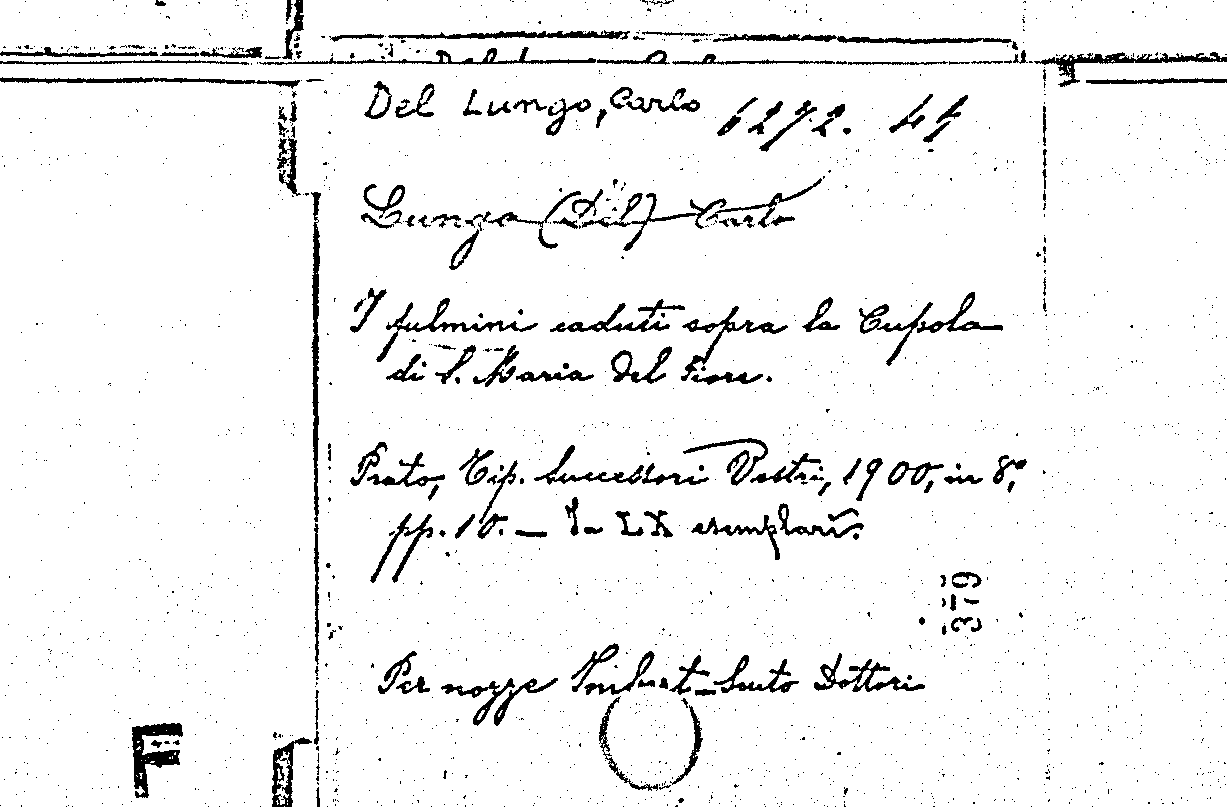 Del Lungo, Carlo 6272. 44
Lungo (Del) Carlo
I fulmini caduti sopra la Cupola
di S. Maria del Fiore.
Prato, Tip. Successori Vestri, 1900, in 8º,
pp. 10. — In LX esemplari.
379
Per nozze Dottori
F